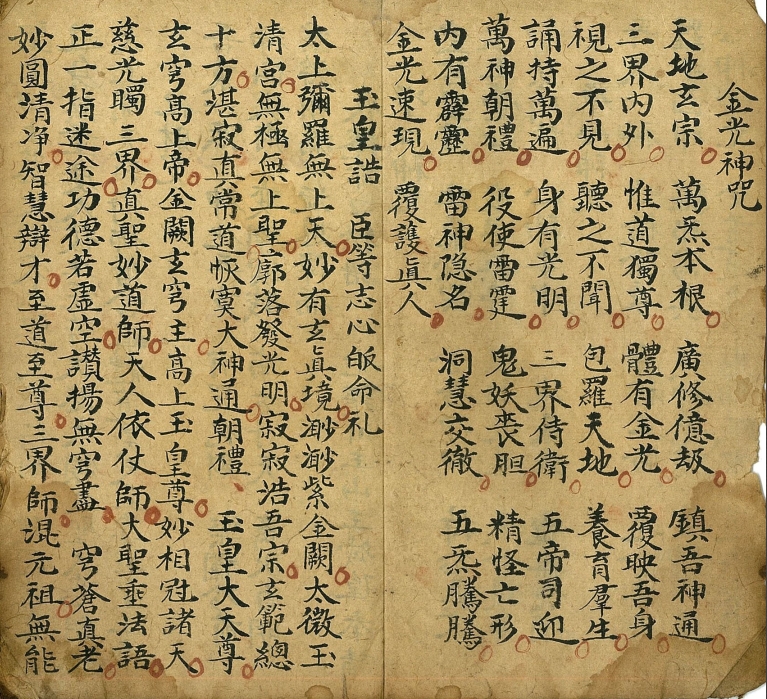 金光神咒
天地玄宗 萬炁本根 廣修億劫 鎮吾神通
三界内外 惟道獨尊 體有金光 覆映吾身
視之不見 聽之不聞 包羅天地 養育羣生
誦持萬遍 身有光明 三界侍衛 五帝司迎
萬神朝禮 役使雷霆 鬼妖喪胆 精怪亡形
内有霹靂 雷神隐名 洞慧交徹 五炁騰騰
金光速現 覆護眞人
玉皇誥 臣等志心皈命礼
太上彌羅無上天妙有玄眞境渺渺紫金闕太微玉
清宮無極無上聖廓落發光明寂寂浩吾宗玄範總
十方湛寂真常道恢寞大神通朝禮、玉皇大天尊
玄穹高上帝金闕玄穹主高上玉皇尊妙相冠諸天
慈光矚三界真聖妙道師天人依仗師大聖垂法語
正一指迷途功德若虚空讃揚無穹盡 穹蒼真老
妙圓清净智慧辯才至道至尊三界師混元祖無能